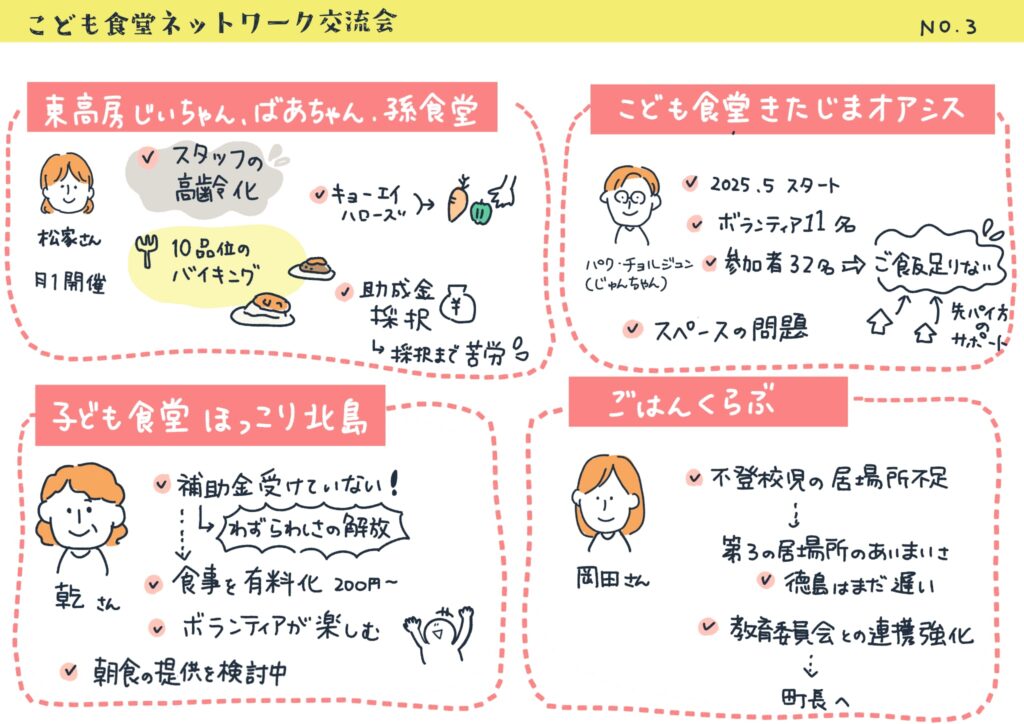 こども食堂ネットワーク交流会
NO.3
東高房じいちゃん、ばあちゃん.孫食堂
松家さん
月1開催
スタッフの
高齢化
10品位の
バイキング
キョーエイ
ハローズ
助成金
採択
¥
採択まで苦労
こども食堂きたじまオアシス
パク・チョルジュン
(じゅんちゃん)
2025.5 スタート
ボランティア11名
参加者32名⇒
ご飯足りない
先パイ方
の
サポート
スペースの問題
子ども食堂 ほっこり北島
乾さん
補助金受けていない!
わずらわしさの解放
食事を有料化 200円~
ボランティアが楽しむ
朝食の提供を検討中
ごはんくらぶ
岡田さん
不登校児の居場所不足
第3の居場所のあいまいさ
徳島はまだ遅い
教育委員会との連携強化
町長へ